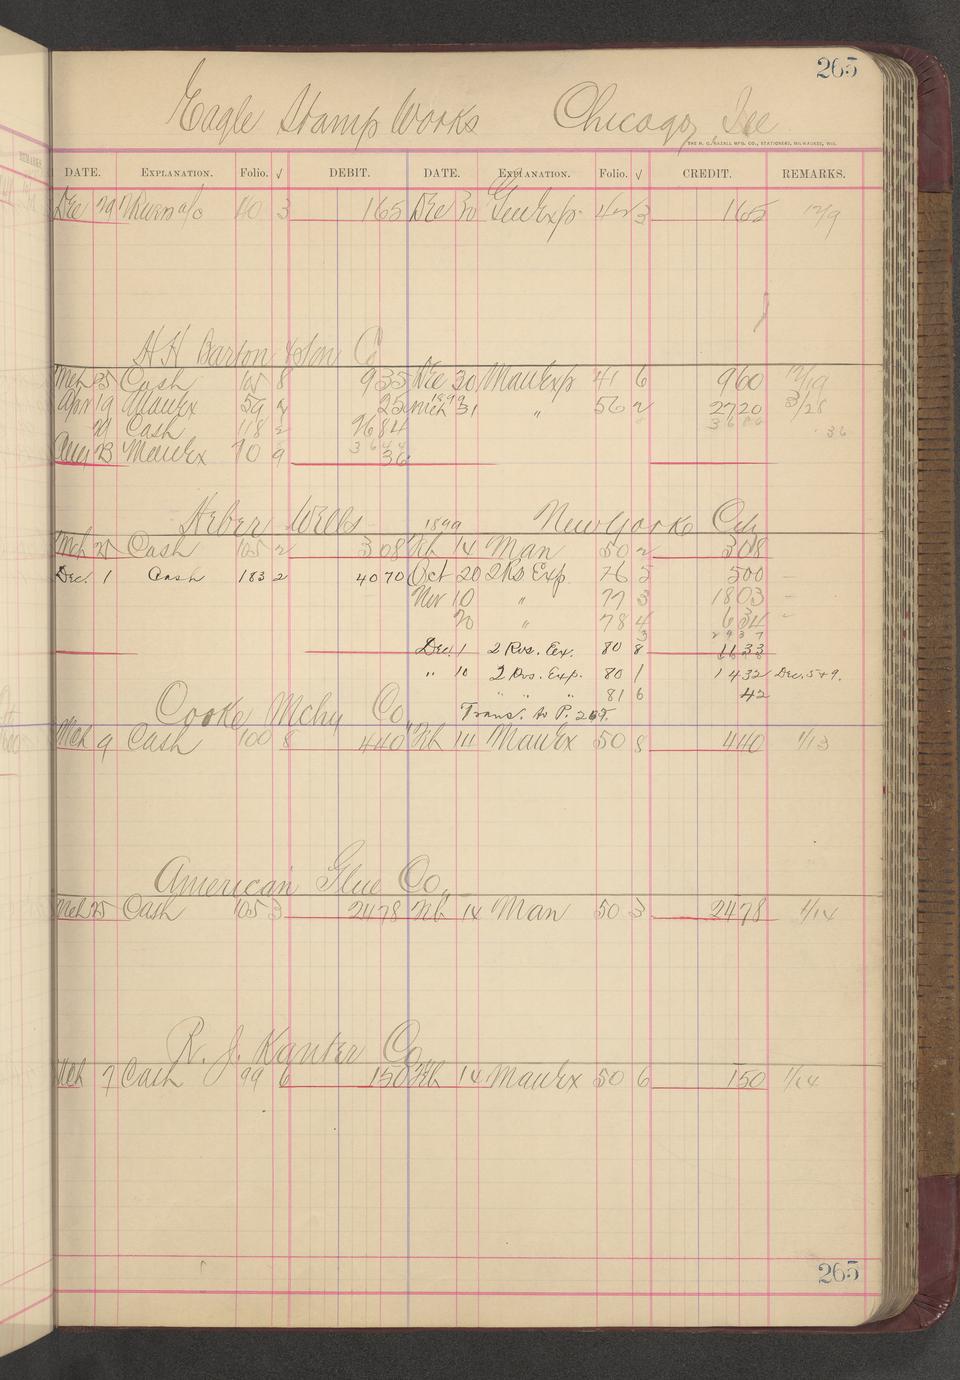 265
Eagle Stamp Works Chicago, Ill
THE H. G. RAZALL MFG. CO., STATIONERS, MILWAUKEE, WIS.
DATE. EXPLANATION. Folio. √ DEBIT. DATE. EXPLANATION. Folio. √ CREDIT. REMARKS.
Dec 29 a/c 40 3 165 Dec 30 Exp 42 3 165 12/9
HH Barton & Son Co
Mch 25 Cash 105 8 935 Dec 30 Man Exp 41 6 960 12/19
Apr 19 Man Ex 59 2 25 1899 Mch 31 " 56 2 2720 3/28
21 Cash 118 2 2684 3680 36
Aug 23 Man Ex 70 9 3644 36
Heber Wells 1899 New York City
Mch 25 Cash 105 2 308 Feb 14 Man 50 2 308
Dec. 1 Cash 183 2 4070 Oct 20 2 Rs Exp. 76 5 500 –
Nov 10 " 77 3 1803 –
20 " 78 4 634 –
3 2937
Dec. 1 2 Rvs. Ex. 80 8 1133
" 10 2 Rvs. Exp. 80 1 1432 Dec. 5 & 9.
" " " 81 6 42
Cooke Mchy Co Trans. to P. 267.
Mch 9 Cash 100 8 440 Feb 14 Man Ex 50 8 440 1/13
American Glue Co.,
Mch 25 Cash 105 3 2478 Feb 14 Man 50 3 2478 1/14
R. J. Kanter Co
Mch 7 Cash 99 6 150 Feb 14 Man Ex 50 6 150 1/14
265